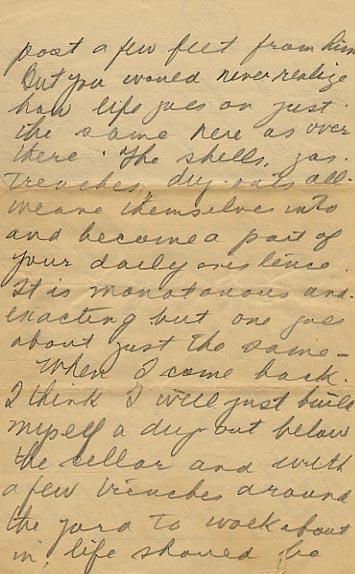 post a few feet from him
But you would never realize
how life goes on just
the same here as over
there. The shells, gas.
trenches, dug-outs all-
weave themselves into
and become a part of
your daily existence.
It is monotonous and-
exacting but one goes
about just the same-
When I come back.
I think I will just build
myself a dug out below
the cellar and with
a few trenches around
the yard to walk about
in, life should be